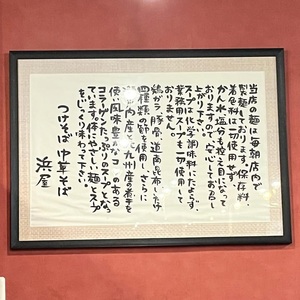 当店の麺は毎朝店内で
製麺しております。保存料
着色料は一切使用せず、
かん水、塩分も控え目になって
おりますので、安心してお召し
上がり下さい。
スープは化学調味料にたよらず、
業務用スープも一切使用して
おりません。
鶏ガラ、豚骨、道南昆布、だけ
四種類の節を使用し、さらに
瀬戸内産と北九州産の煮干を
使い風味豊かなコクのある
コラーゲンたっぷりのスープとなっ
ています。体にやさしい麺とスープ
をじっくり味わって下さい。
つけそば 中華そば
浜屋